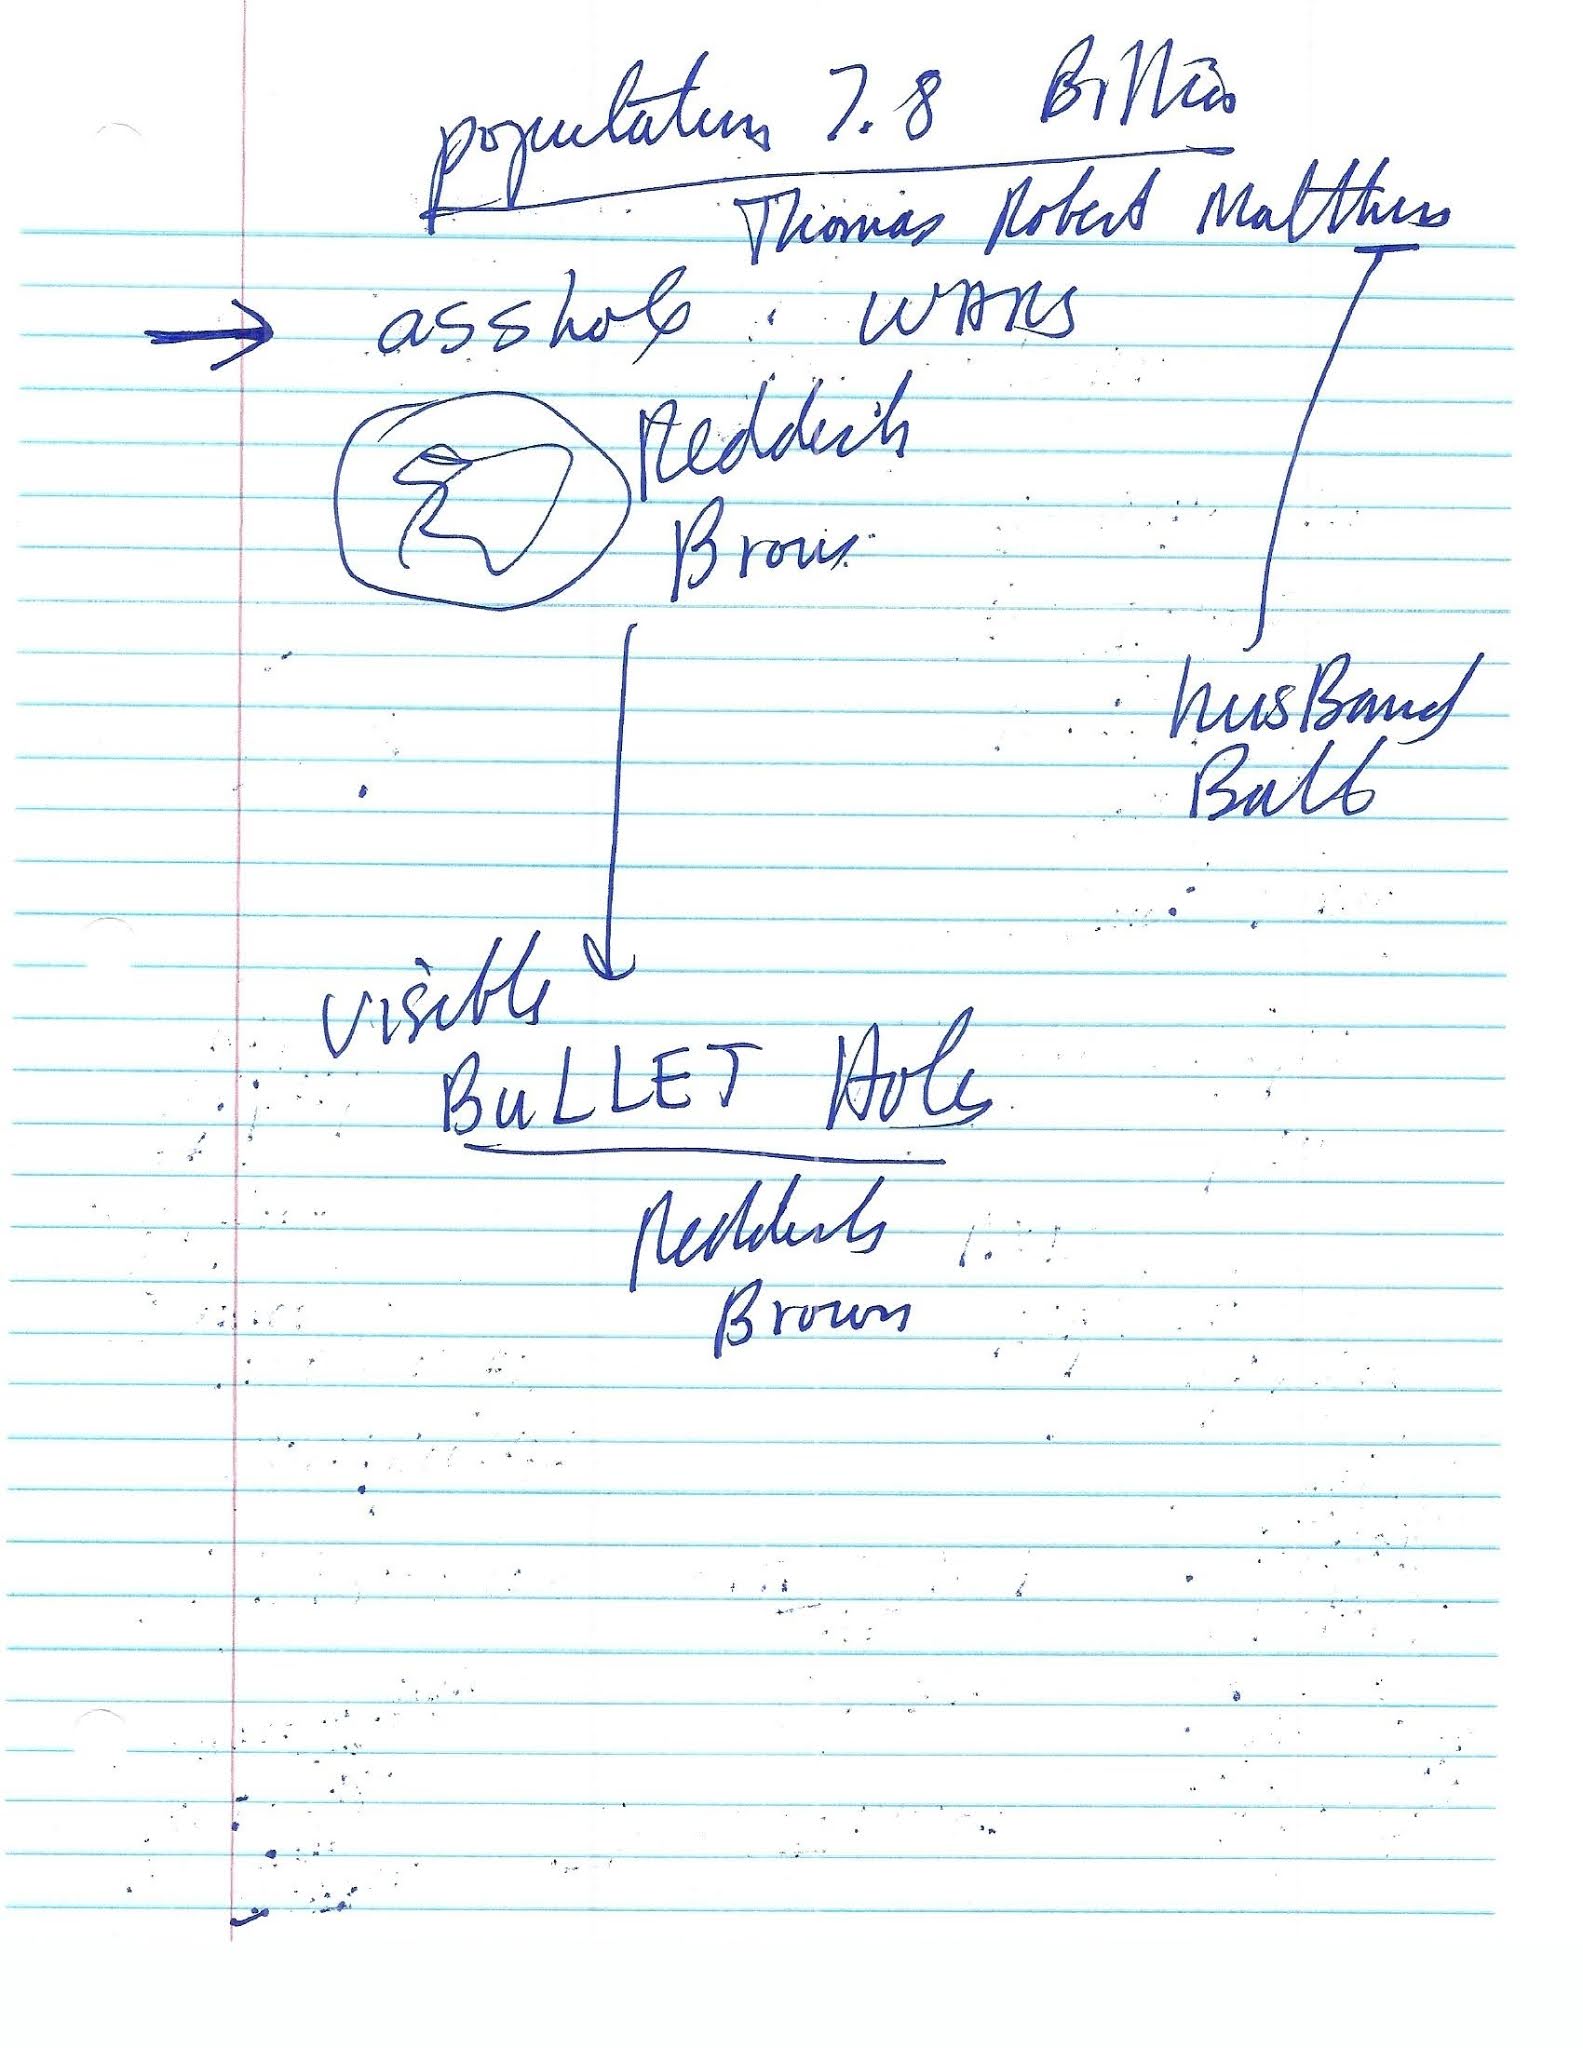 population 7.8 Billion
Thomas Robert Malthus
asshole : WARS
Reddish
Brown
husBand
Ball
visible
BuLLET Hole
Reddish
Brown